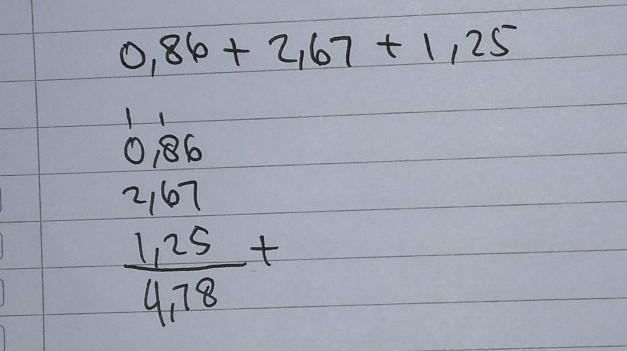 0,86 + 2,67 + 1,25
1 1
0,86
2,67
1,25 +
4,78